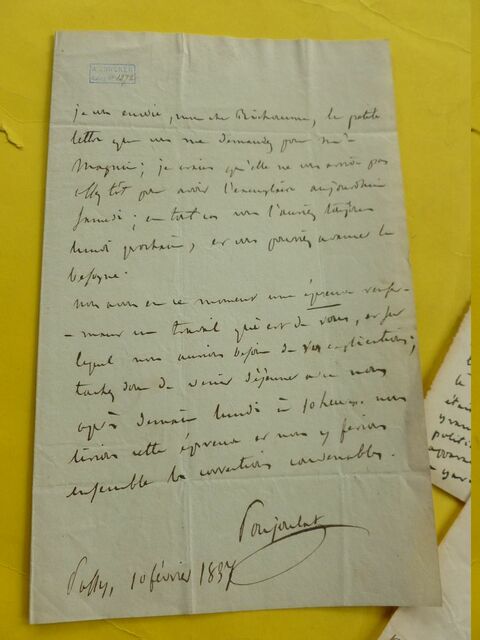 je vous envoie, mon cher Richomme, la petite
lettre que vous me demandez pour Mr
Magnin; je crains qu'elle ne vous arrive pas
assez tôt pour avoir l'exemplaire aujourd'hui
Samedi; en tout cas vous l'aurez toujours
lundi prochain, et vous pourrez avancer la
besogne.
nous avons en ce moment une épreuve renfer-
-mant un travail qui est de vous, et sur
lequel nous aurions besoin de vos explications;
tachez donc de venir déjeuner avec nous
après demain lundi à 10 heures. nous
lirions cette épreuve et nous y ferions
ensemble les corrections convenables.
Poujoulat
Passy, 10 février 1837